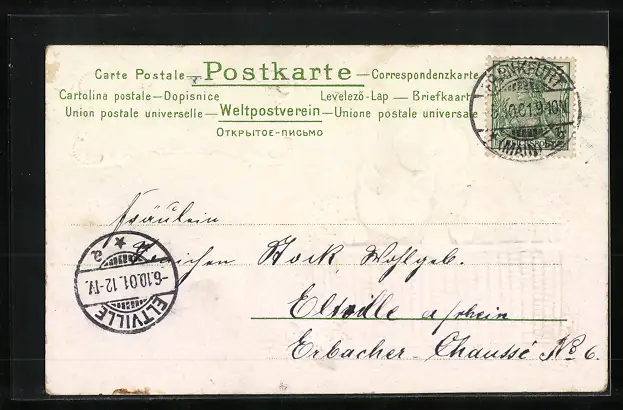 Carte Postale — Postkarte — Correspondenzkarte
Cartolina postale — Dopisnice Levelező-Lap — Briefkaart
Union postale universelle — Weltpostverein — Unione postale universale
Открытое-письмо
FRANKFURT
10.01.9-10N
(MAIN)
Fräulein
Stock Wohlgeb.
Eltville a/Rhein
Erbacher-Chaussé No 6.
ELTVILLE
-6.10.01.12-1V.
a